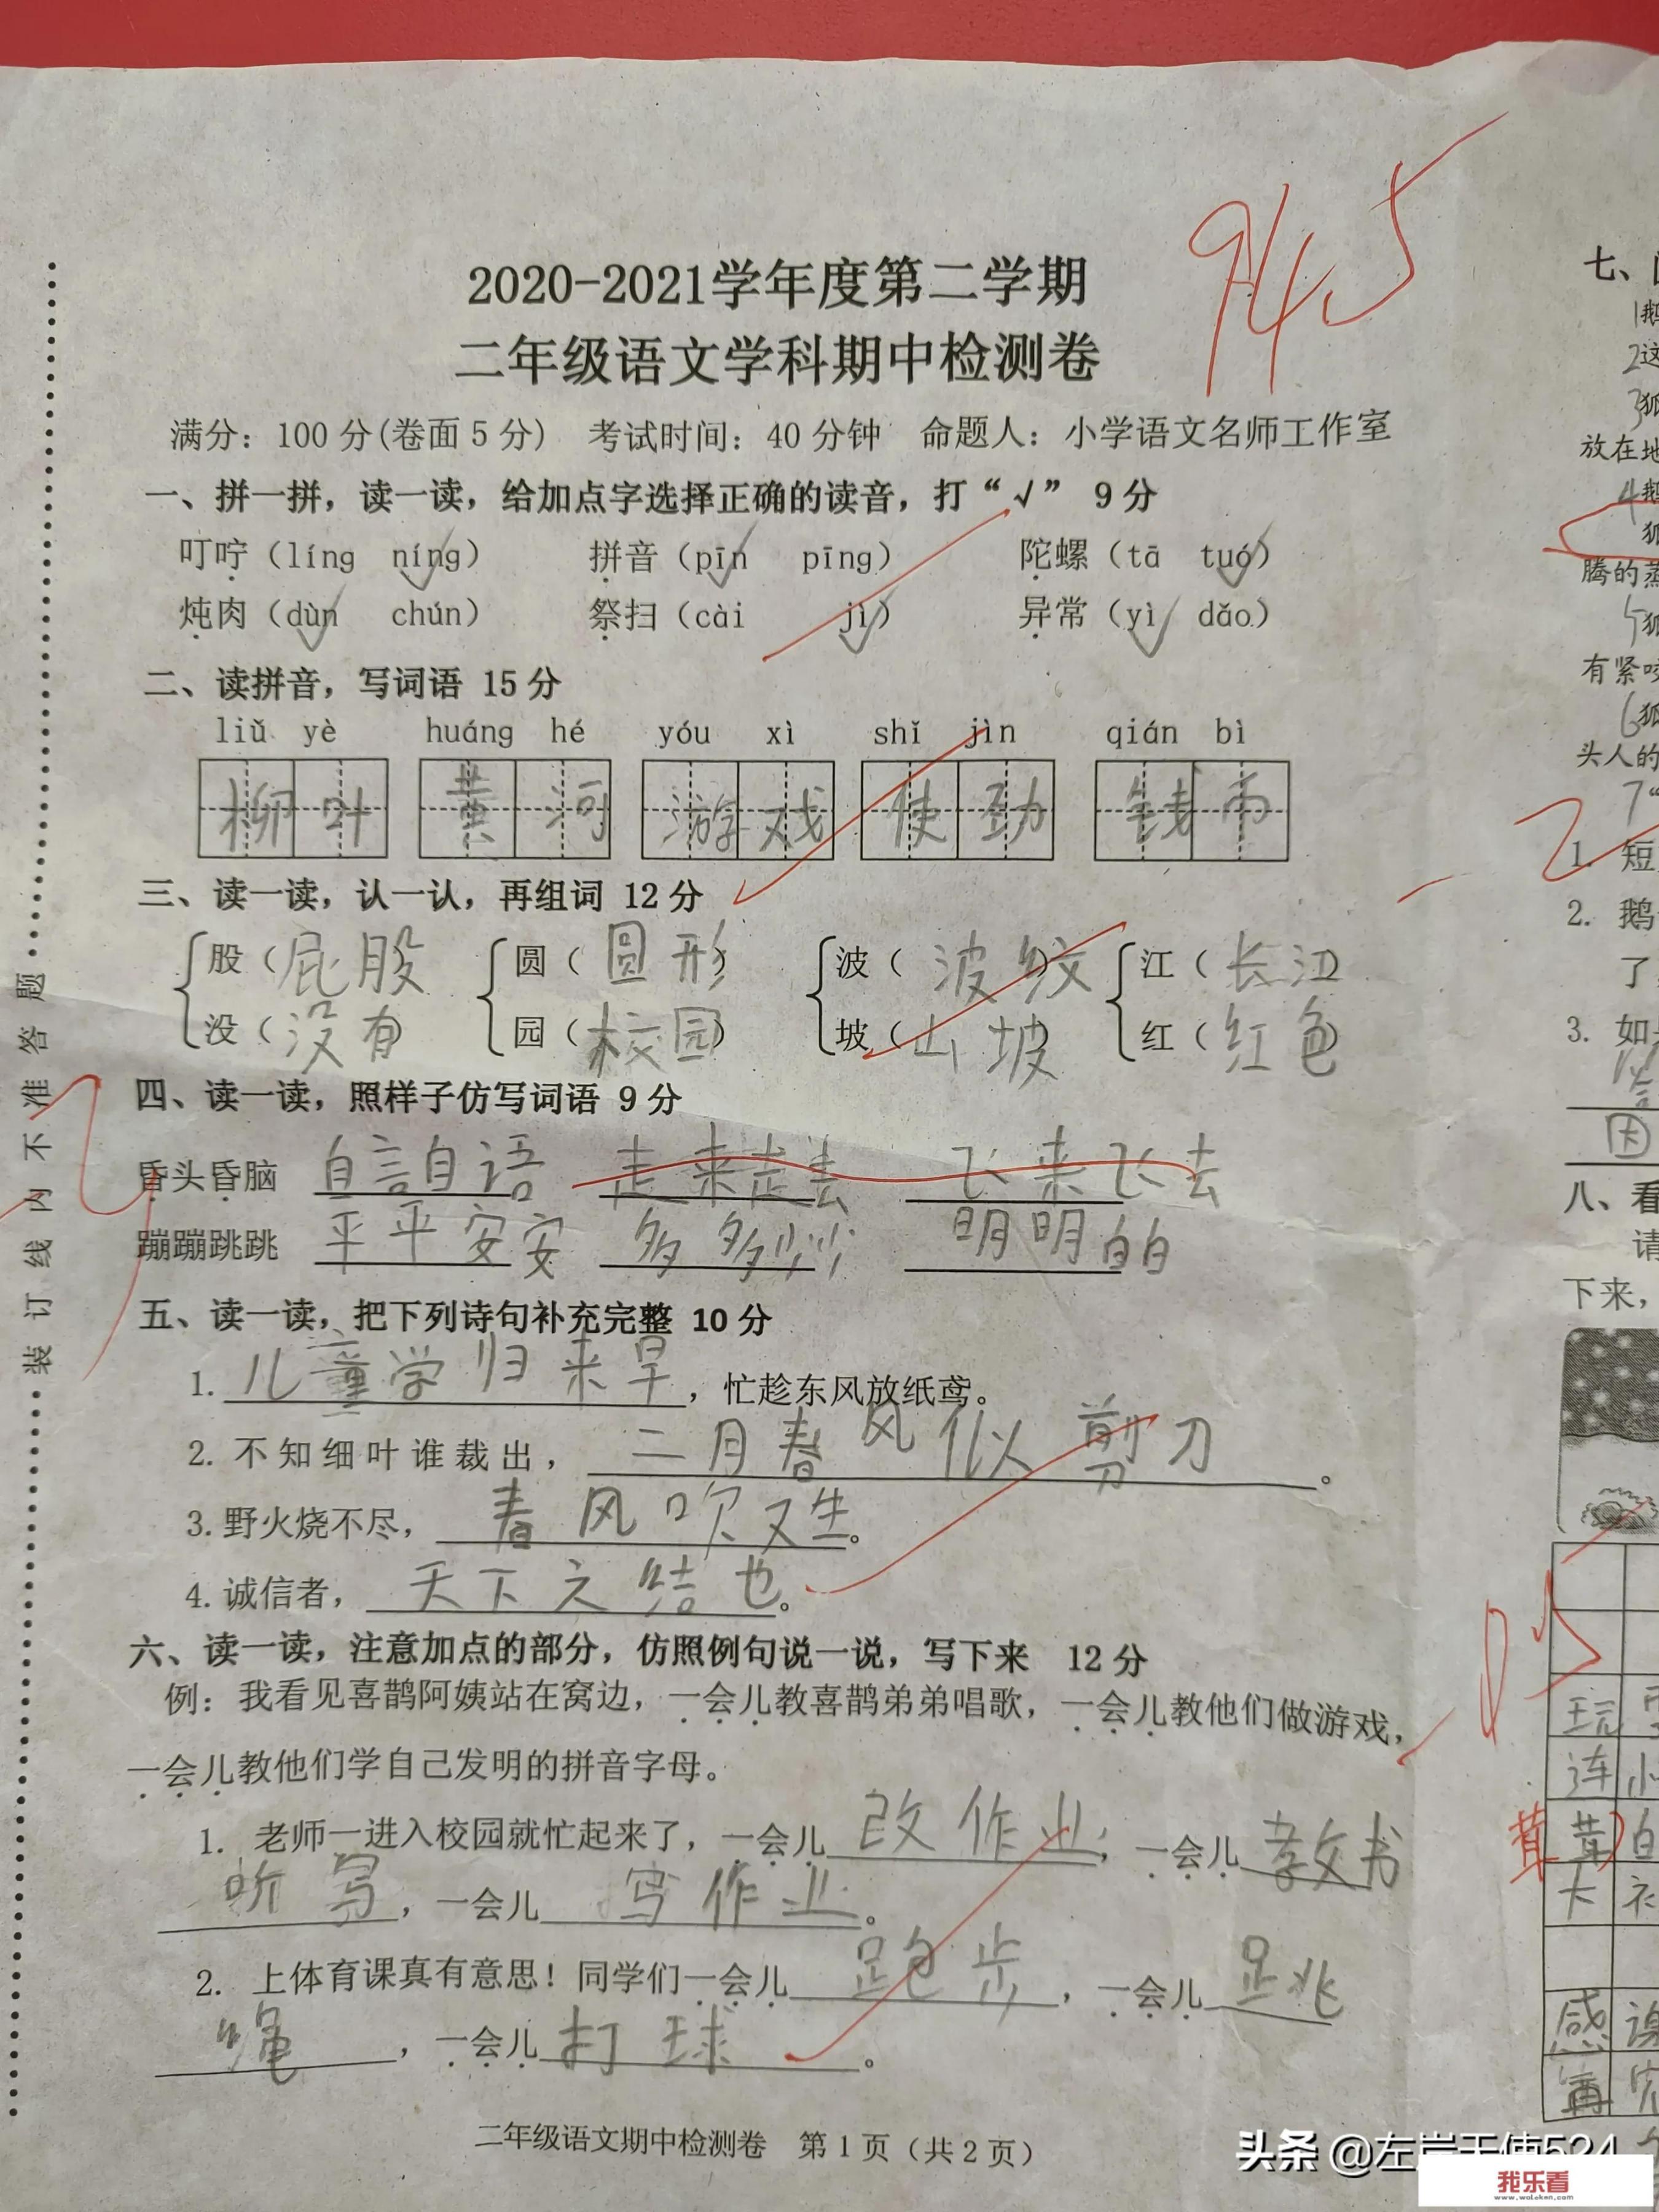 94.5
2020-2021学年度第二学期
二年级语文学科期中检测卷
满分：100分(卷面5分) 考试时间：40分钟 命题人：小学语文名师工作室
一、拼一拼，读一读，给加点字选择正确的读音，打“√” 9分
叮咛（líng níng） 拼音（pīn pīng） 陀螺（tā tuó）
炖肉（dùn chún） 祭扫（cài jì） 异常（yì dǎo）
二、读拼音，写词语 15分
liǔ yè huáng hé yóu xì shǐ jìn qián bì
柳叶 黄河 游戏 使劲 钱币
三、读一读，认一认，再组词 12分
股（屁股 圆（圆形） 波（波纹） 江（长江）
没（没有） 园（校园） 坡（山坡） 红（红色）
四、读一读，照样子仿写词语 9分
昏头昏脑 自言自语 走来走去 飞来飞去
蹦蹦跳跳 平平安安 多多少少 明明白白
五、读一读，把下列诗句补充完整 10分
1. 儿童学归来早，忙趁东风放纸鸢。
2. 不知细叶谁裁出，二月春风似剪刀。
3.野火烧不尽，春风吹又生。
4.诚信者，天下之结也。
六、读一读，注意加点的部分，仿照例句说一说，写下来 12分
例：我看见喜鹊阿姨站在窝边，一会儿教喜鹊弟弟唱歌，一会儿教他们做游戏，
一会儿教他们学自己发明的拼音字母。
1. 老师一进入校园就忙起来了，一会儿改作业，一会儿教书
听写，一会儿写作业。
2. 上体育课真有意思！同学们一会儿跑步，一会儿跳
绳，一会儿打球。
二年级语文期中检测卷 第1页（共2页）
装订线内不准答题
七、
1鹅
2这
3狐
放在地
4鹅
狐
腾的蒸
5狐
有紧咬
6狐
头人的
7“
1. 短
2. 鹅
了
3. 如
因
八、看
请
下来，
连
茸 茸 白
大
感 谢
头条 @左岸天使524
我乐看
www.wolaken.com